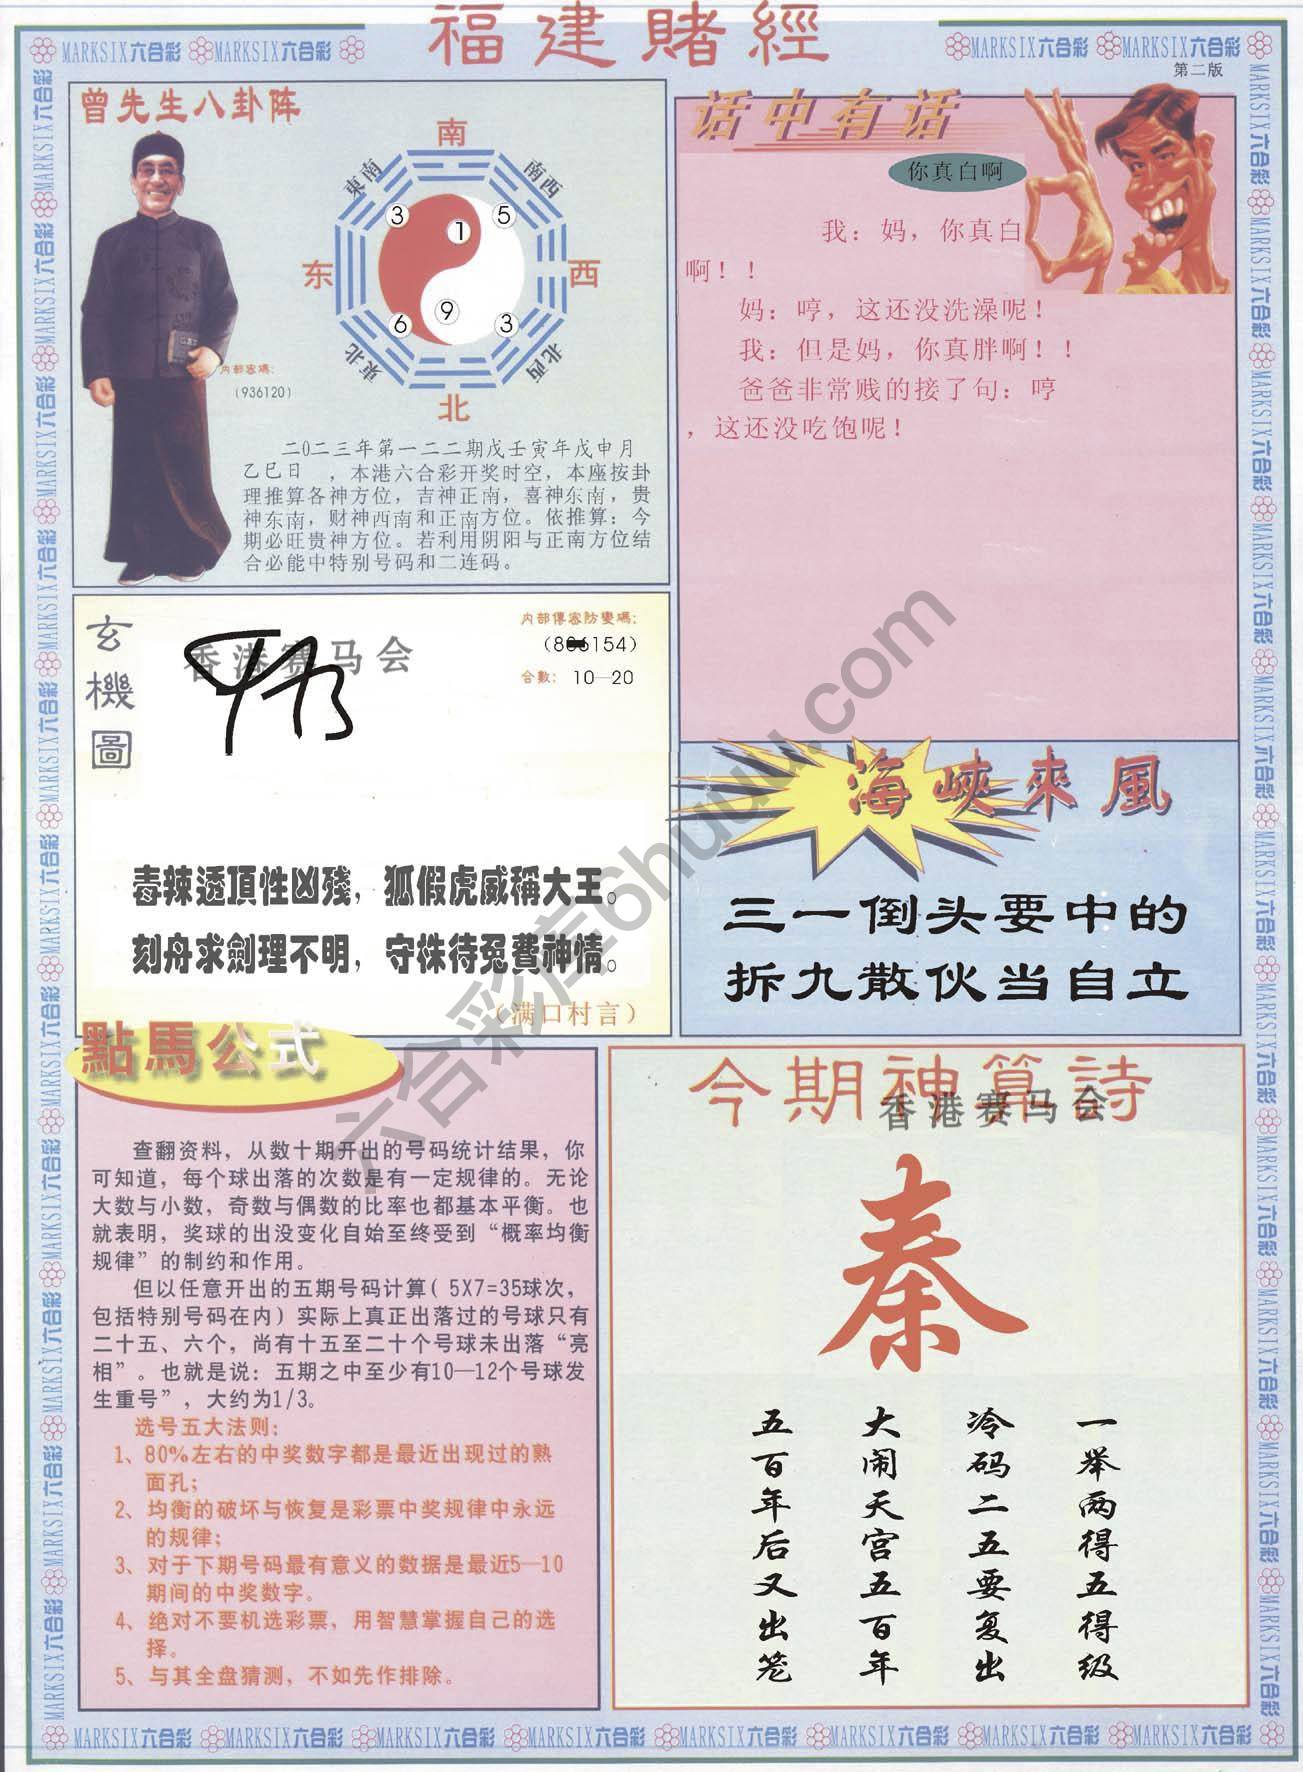 福建賭經
MARKSIX六合彩 MARKSIX六合彩
MARKSIX六合彩 MARKSIX六合彩
第二版
曾先生八卦阵
南
東南
南西
3
5
1
东
西
9
6
3
東北
北西
北
内部密碼:
(936120)
二0二三年第一二二期戊壬寅年戊申月
乙巳日 ，本港六合彩开奖时空，本座按卦
理推算各神方位，吉神正南，喜神东南，贵
神东南，财神西南和正南方位。依推算：今
期必旺贵神方位。若利用阴阳与正南方位结
合必能中特别号码和二连码。
话中有话
你真白啊
我：妈，你真白
啊！！
妈：哼，这还没洗澡呢！
我：但是妈，你真胖啊！！
爸爸非常贱的接了句：哼
，这还没吃饱呢！
玄機圖
香港赛马会
内部傳密防變碼:
合數: 10—20
毒辣透頂性凶殘，狐假虎威稱大王。
刻舟求劍理不明，守株待兔費神情。
（满口村言）
海峽來風
三一倒头要中的
拆九散伙当自立
點馬公式
查翻资料，从数十期开出的号码统计结果，你
可知道，每个球出落的次数是有一定规律的。无论
大数与小数，奇数与偶数的比率也都基本平衡。也
就表明，奖球的出没变化自始至终受到“概率均衡
规律”的制约和作用。
但以任意开出的五期号码计算(5X7=35球次，
包括特别号码在内)实际上真正出落过的号球只有
二十五、六个，尚有十五至二十个号球未出落“亮
相”。也就是说：五期之中至少有10—12个号球发
生重号”，大约为1/3。
选号五大法则:
1、80%左右的中奖数字都是最近出现过的熟
面孔;
2、均衡的破坏与恢复是彩票中奖规律中永远
的规律;
3、对于下期号码最有意义的数据是最近5—10
期间的中奖数字。
4、绝对不要机选彩票，用智慧掌握自己的选
择。
5、与其全盘猜测，不如先作排除。
今期神算詩
香港赛马会
秦
一举两得五得级
冷码二五要复出
大闹天宫五百年
五百年后又出笼
六合彩库6huuu.com
MARKSIX六合彩 MARKSIX六合彩 MARKSIX六合彩 MARKSIX六合彩 MARKSIX六合彩 MARKSIX六合彩 MARKSIX六合彩 MARKSIX六合彩